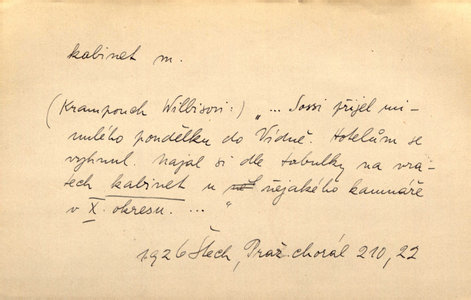 kabinet m.
(Krampouch Wilbisovi:) „... Sossi přijel mi-
nulého pondělku do Vídně. Hotelům se
vyhnul. Najal si dle tabulky na vra-
tech kabinet u nějakého kamnáře
v X. okresu. ..."
1926 Štech, Praž. chorál 210, 22